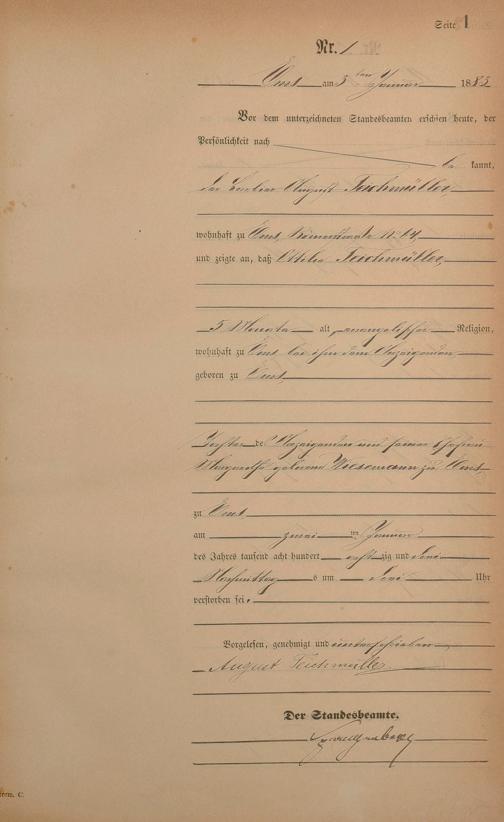 Seite 1
Nr. 1
Ems am 3ten Januar 1883
Vor dem unterzeichneten Standesbeamten erschien heute, der
Persönlichkeit nach
be kannt,
der August Teichmüller,
wohnhaft zu Ems, Römerstraße N. 64,
und zeigte an, daß Ottilie Teichmüller,
5 Monate alt, evangelischer Religion,
wohnhaft zu Ems bei ihm dem Anzeigenden
geboren zu Ems,
Tochter des Anzeigenden und seiner Ehefrau
Margarethe geborene Wiesemann zu Ems
zu Ems
am zwei ten Januar
des Jahres tausend acht hundert acht zig und drei
Nachmittag s um drei Uhr
verstorben sei.
Vorgelesen, genehmigt und unterschrieben
August Teichmüller.
Der Standesbeamte.
orm. C.